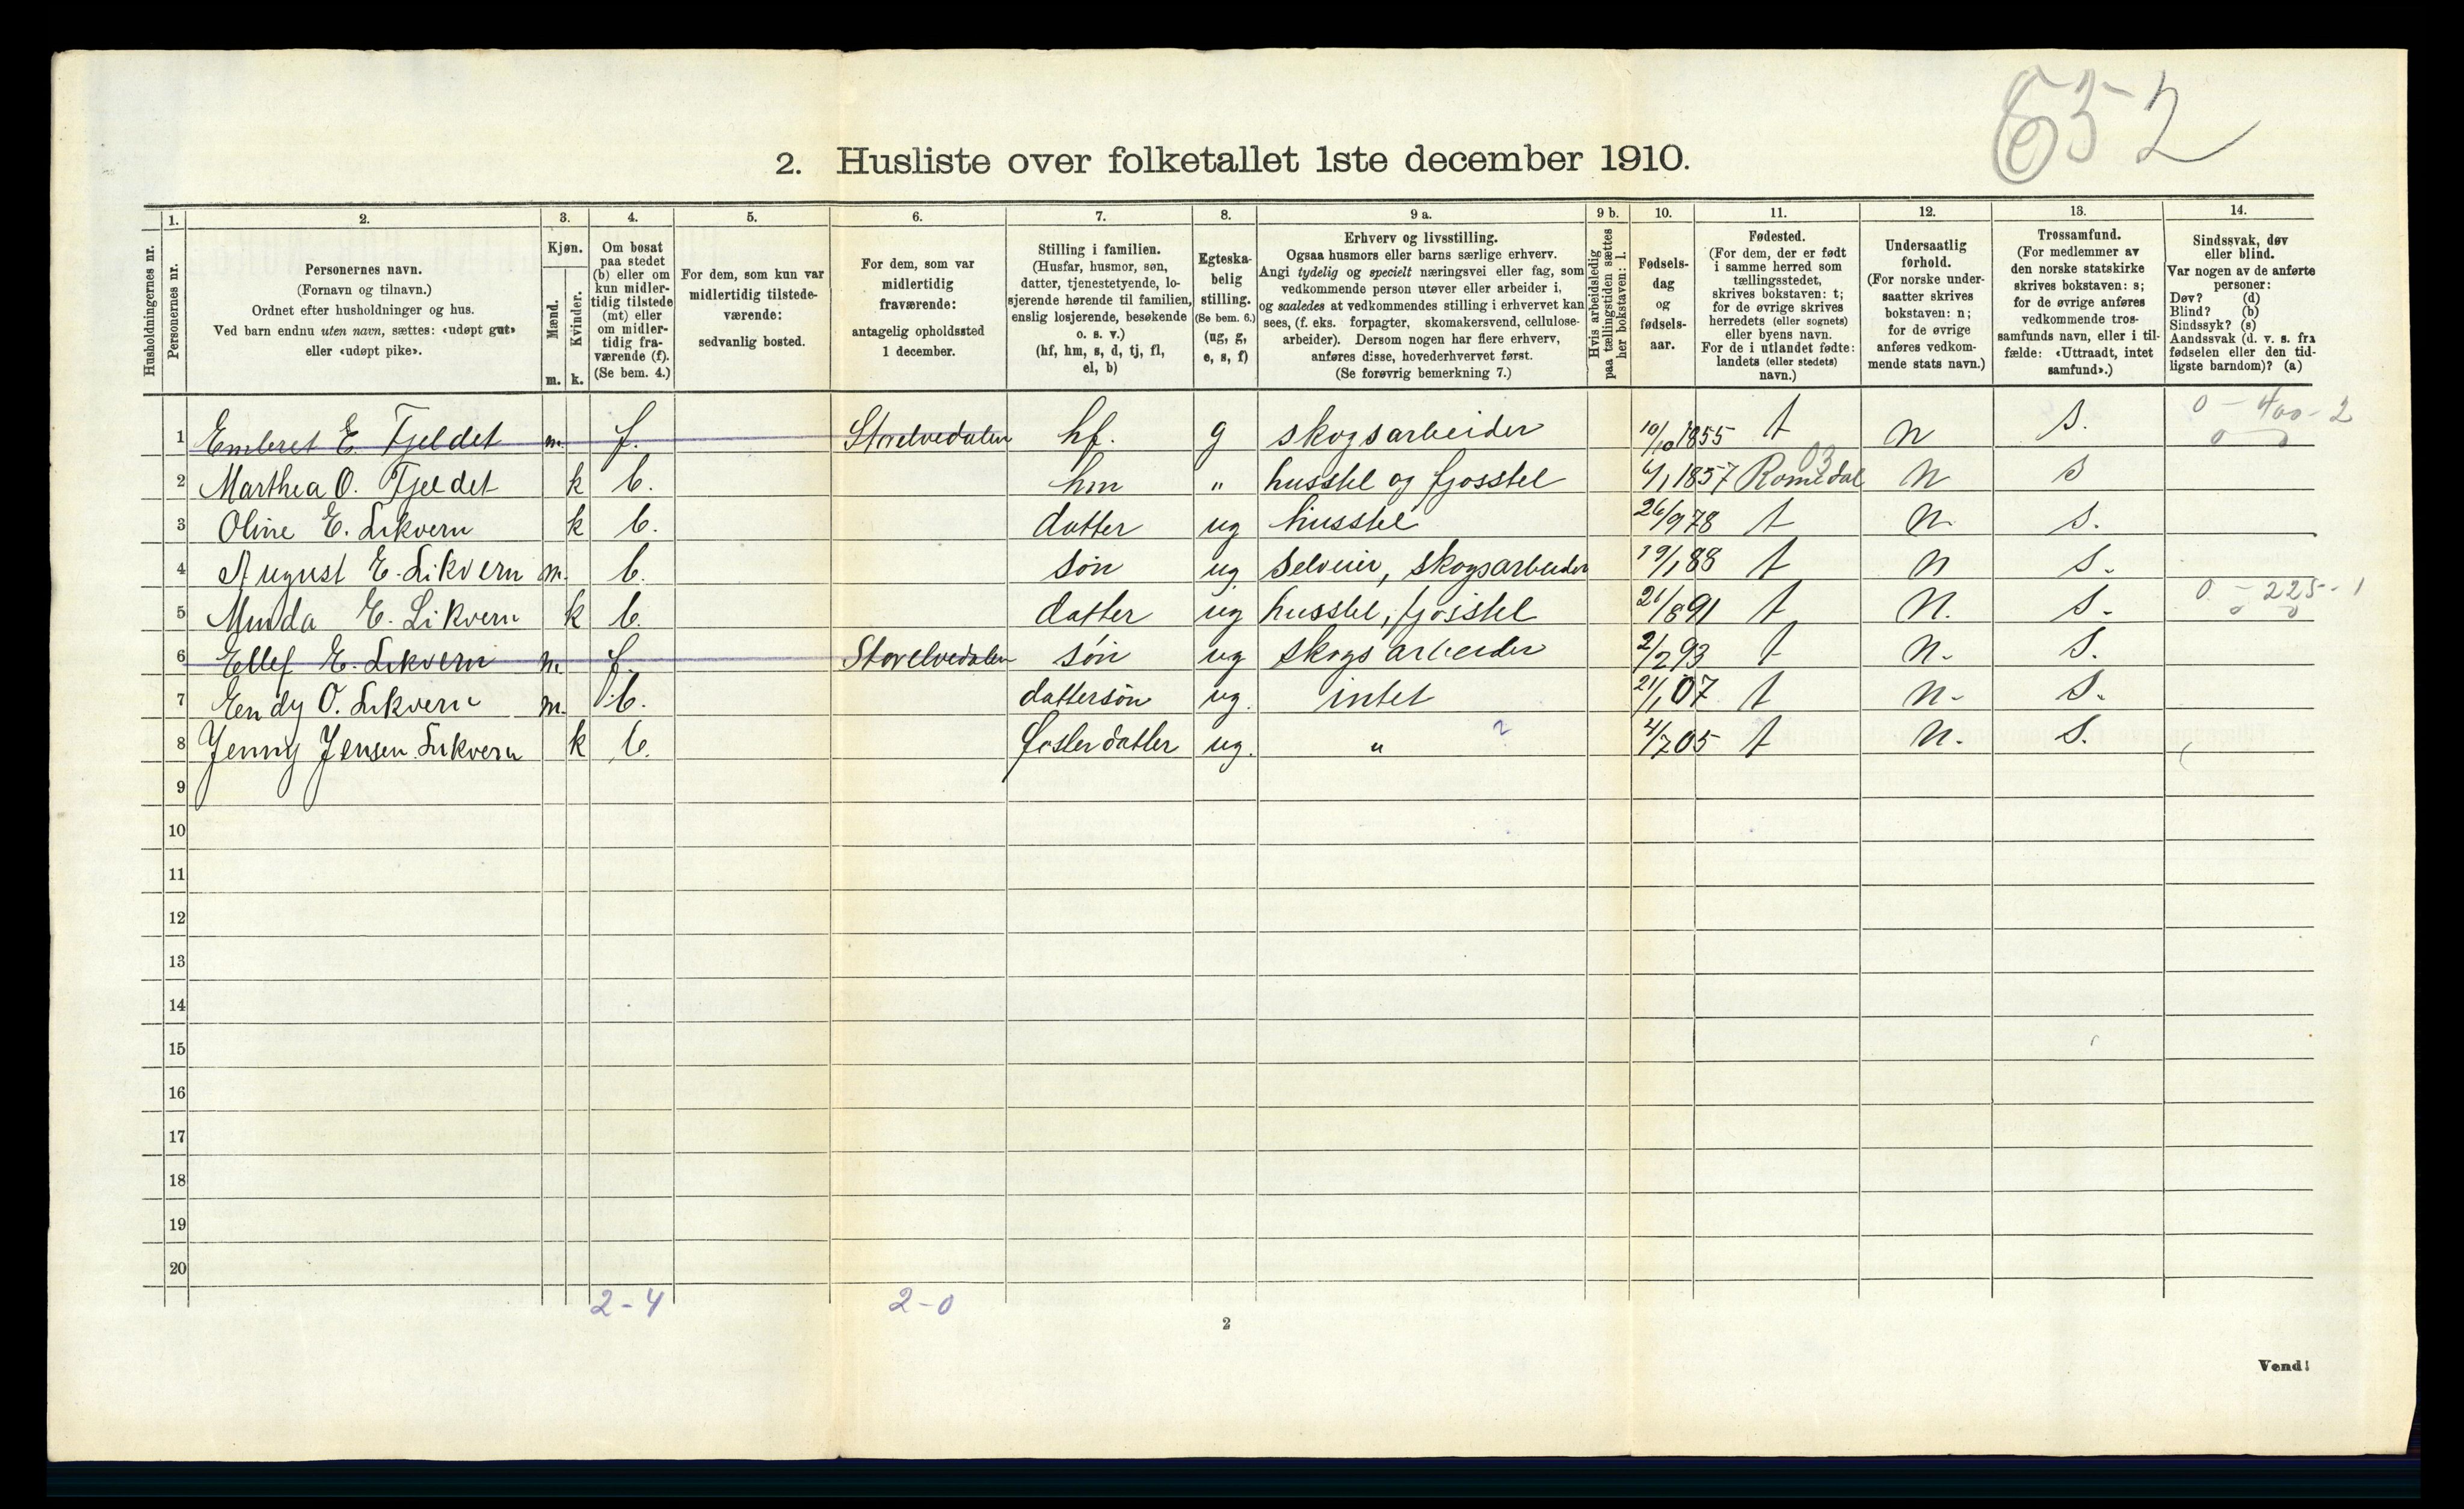 652
2. Husliste over folketallet 1ste december 1910.
Husholdningernes nr.
1. Personernes nr.
2. Personernes navn.
(Fornavn og tilnavn.)
Ordnet efter husholdninger og hus.
Ved barn endnu uten navn, sættes: «udøpt gut»
eller «udøpt pike».
3. Kjøn.
Mænd. Kvinder.
m. k.
4. Om bosat
paa stedet
(b) eller om
kun midler-
tidig tilstede
(mt) eller
om midler-
tidig fra-
værende (f).
(Se bem. 4.)
5. For dem, som kun var
midlertidig tilstede-
værende:
sedvanlig bosted.
6. For dem, som var
midlertidig
fraværende:
antagelig opholdssted
1 december.
7. Stilling i familien.
(Husfar, husmor, søn,
datter, tjenestetyende, lo-
sjerende hørende til familien,
enslig losjerende, besøkende
o. s. v.)
(hf, hm, s, d, tj, fl,
el, b)
8. Egteska-
belig
stilling.
(Se bem. 6.)
(ug, g,
e, s, f)
9 a. Erhverv og livsstilling.
Ogsaa husmors eller barns særlige erhverv.
Angi tydelig og specielt næringsvei eller fag, som
vedkommende person utøver eller arbeider i,
og saaledes at vedkommendes stilling i erhvervet kan
sees, (f. eks. forpagter, skomakersvend, cellulose-
arbeider). Dersom nogen har flere erhverv,
anføres disse, hovederhvervet først.
(Se forøvrig bemerkning 7.)
9 b. Hvis arbeidsledig
paa tællingstiden sættes
her bokstaven: l.
10. Fødsels-
dag
og
fødsels-
aar.
11. Fødested.
(For dem, der er født
i samme herred som
tællingsstedet,
skrives bokstaven: t;
for de øvrige skrives
herredets (eller sognets)
eller byens navn.
For de i utlandet fødte:
landets (eller stedets)
navn.)
12. Undersaatlig
forhold.
(For norske under-
saatter skrives
bokstaven: n;
for de øvrige
anføres vedkom-
mende stats navn.)
13. Trossamfund.
(For medlemmer av
den norske statskirke
skrives bokstaven: s;
for de øvrige anføres
vedkommende tros-
samfunds navn, eller i til-
fælde: «Uttraadt, intet
samfund».)
14. Sindssvak, døv
eller blind.
Var nogen av de anførte
personer:
Døv? (d)
Blind? (b)
Sindssyk? (s)
Aandssvak (d. v. s. fra
fødselen eller den tid-
ligste barndom)? (a)
1 Embret E. Fjeldet m. f. Storelvedalen hf. g skogsarbeider 10/10 1855 t n s. 0 - 400 - 2
2 Marthea O. Fjeldet k b. hm " husstel og fjosstel 6/1 1857 Romedal 03 n s
3 Oline E. Likvern k b. datter ug husstel 26/9 78 t n. s.
4 August E. Likvern m. b. søn ug selveier, skogsarbeider 19/1 88 t n s.
5 Minda E. Likvern k b. datter ug husstel, fjosstel 21/8 91 t n. s. 0 - 225 - 1
6 Ellef E. Likvern m. f. Storelvedalen søn ug skogsarbeider 2/2 93 t n. s.
7 Endy O. Likvern m. b. dattersøn ug. intet 21/1 07 t n. s.
8 Jenny Jensen Likvern k b. fosterdatter ug. " ? 4/7 05 t n. s.
9
10
11
12
13
14
15
16
17
18
19
20
2-4 2-0
2
Vend!